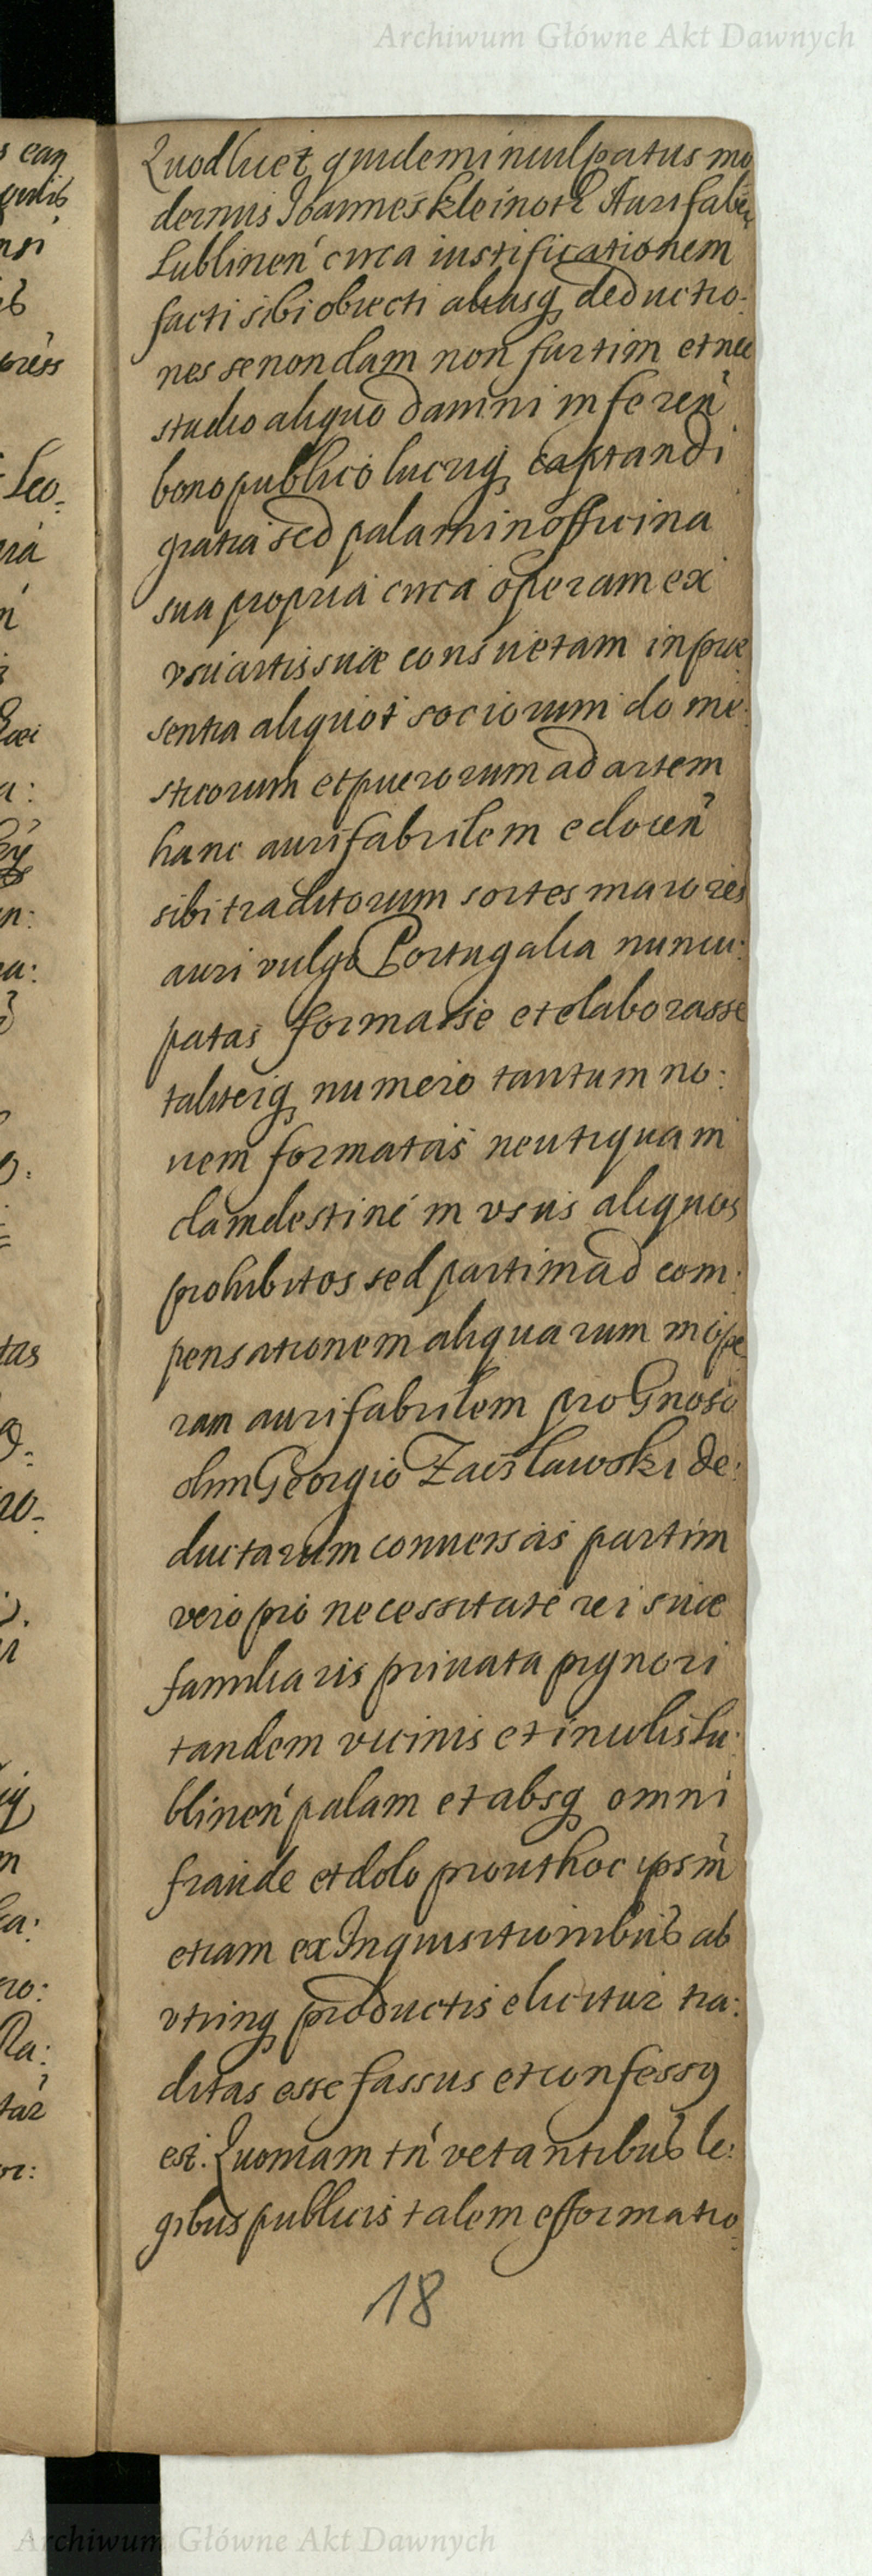 Archiwum Główne Akt Dawnych
Quod licet quidem inculpatus mo
dernus Joannes Kleinoth Aurifaber
Lublinen̄ circa iustificationem
facti sibi obiecti aliasq́ deductio-
nes se nondam non furtim et nec
studio aliquo damni inferen̄
bono publico lucriq́ captandi
gratia sed palam in officina
sua propria circa operam ex
vsu artis suæ consuetam in præ
sentia aliquot sociorum dome:
sticorum et puerorum ad artem
hanc aurifabrilem edocen̄
sibi traditorum sortes maiores
auri vulgo Portugalia nuncu:
patas formasse et elaborasse
taliterq́ numero tantum no:
uem formatas neutiquam
clamdestiné in vsus aliquos
prohibitos sed partim ad com:
pensationem aliquarum in ope
ram aurifabrilem pro Gnoso
olim Georgio Zasławski de:
ductarum conuersas partim
vero pro necessitate rei suæ
familiaris priuata pignori
tandem vicinis et inculis Lu:
blinen̄ palam et absq́ omni
fraude et dolo prout hoc ipsm̄
etiam ex Inquisitionibus ab
vtrinq́ productis elicitur tra:
ditas esse fassus et confessq
est. Quoniam tn̄ vetantibus le:
gibus publicis talem efformatio-
18
s ean
nsi
Leo-
n
a:
n:
a:
tas
ro-
m
ro:
Ra:
tar
or:
Archiwum Główne Akt Dawnych